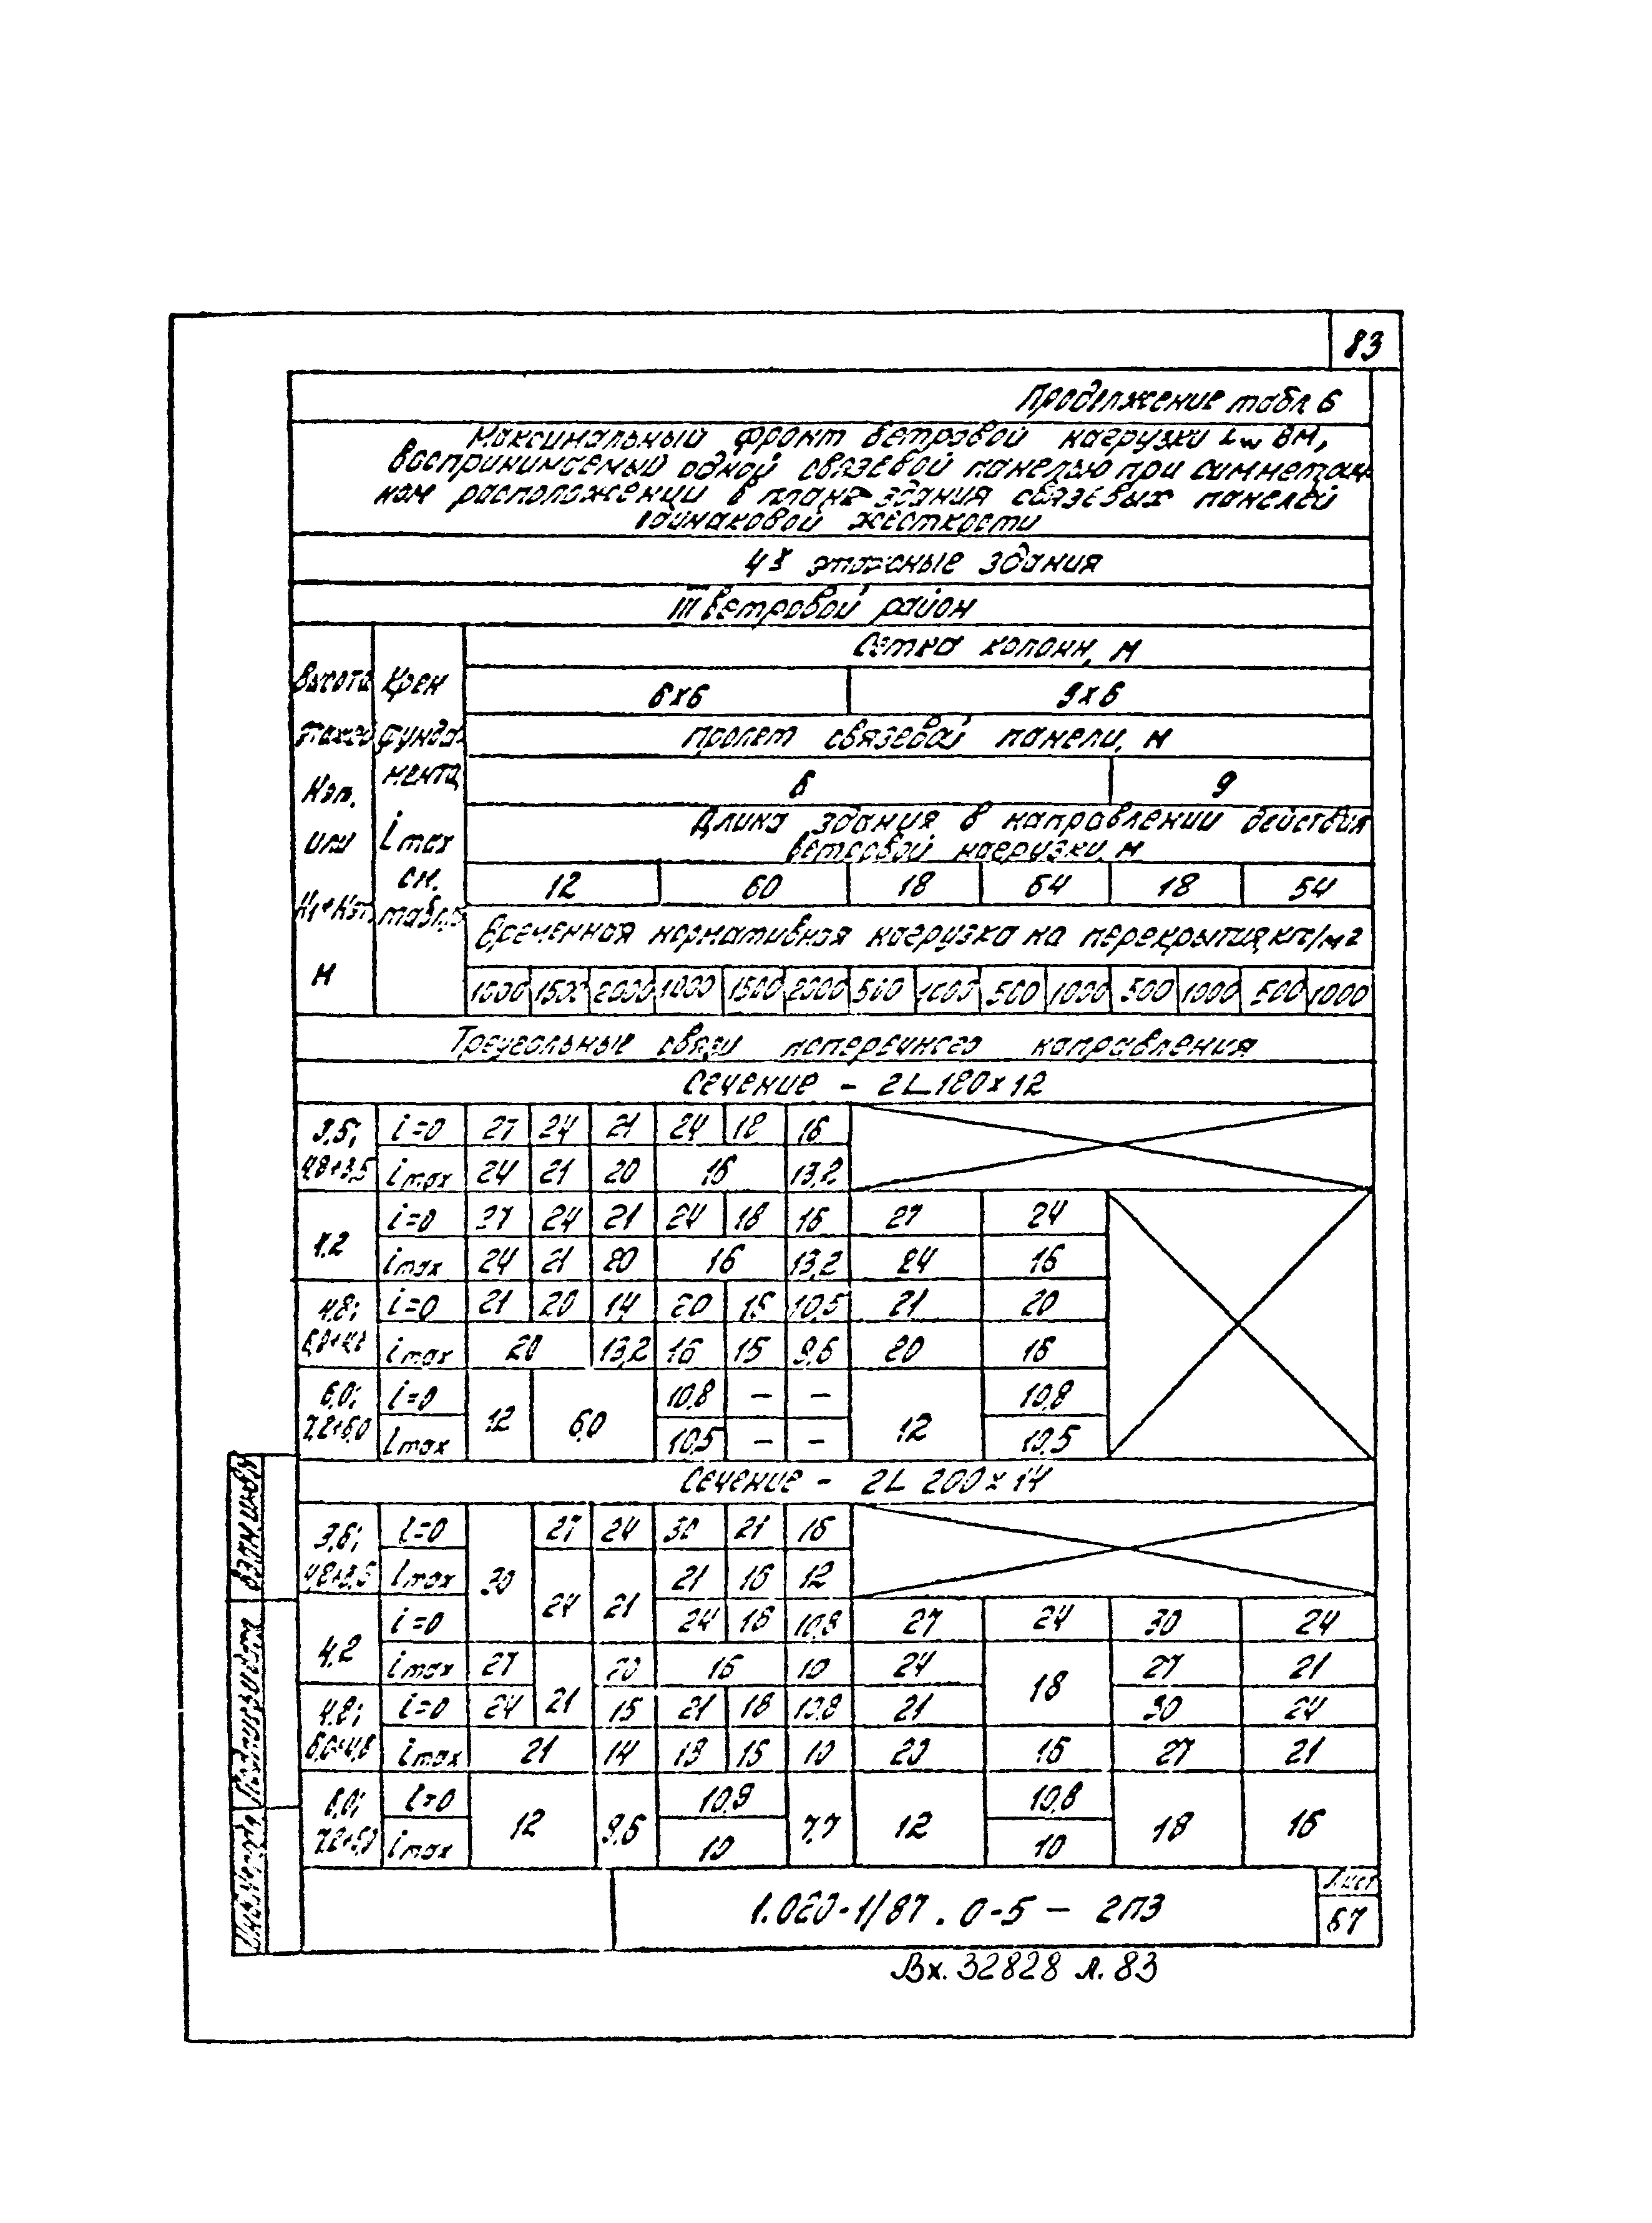 83
Продолжение табл 6
Максимальный фронт ветровой нагрузки Lw в м,
воспринимаемый одной связевой панелью при симметрич
ном расположении в плане здания связевых панелей
одинаковой жёсткости
4х этажные здания
III ветровой район
Высота этажей Нэт. или Н1+Нэт, м
Крен фундамента imax см. табл.
Сетка колонн, м
6х6 9х6
Пролет связевой панели, м
6 9
Длина здания в направлении действия
ветровой нагрузки, м
12 60 18 54 18 54
Временная нормативная нагрузка на перекрытия, кгс/м2
1000 1500 2000 1000 1500 2000 500 1000 500 1000 500 1000 500 1000
Треугольные связи поперечного направления
Сечение - 2L 180х12
3,6; 4,8+3,6 i=0 27 24 21 24 18 16
imax 24 21 20 16 13,2
4,2 i=0 27 24 21 24 18 16 27 24
imax 24 21 20 16 13,2 24 16
4,8; 6,0+4,8 i=0 21 20 14 20 15 10,5 21 20
imax 20 13,2 16 15 9,6 20 16
6,0; 7,2+6,0 i=0 12 6,0 10,8 - - 12 10,8
imax 10,5 - - 10,5
Сечение - 2L 200х14
3,6; 4,8+3,6 i=0 30 27 24 30 21 16
imax 24 21 21 16 12
4,2 i=0 24 16 10,8 27 24 30 24
imax 27 21 20 16 10 24 18 27 21
4,8; 6,0+4,8 i=0 24 15 21 18 10,8 21 30 24
imax 21 14 18 15 10 20 16 27 21
6,0; 7,2+6,0 i=0 12 9,6 10,9 7,7 12 10,8 18 16
imax 10 10
Взам инв№
Подпись и дата
Инв.№ подл
1.020-1/87 . 0-5 - 2ПЗ
Лист
67
Вх. 32828 л. 83